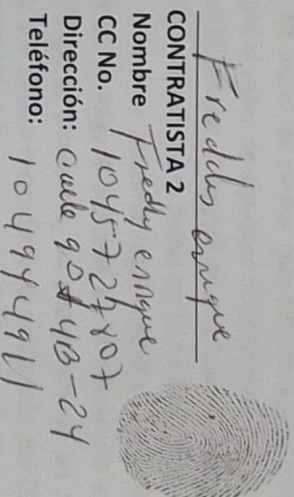 Freddy enrique
CONTRATISTA 2
Nombre Fredy enrique
CC No. 1045727807
Dirección: calle 90# 4B-24
Teléfono: 104944911